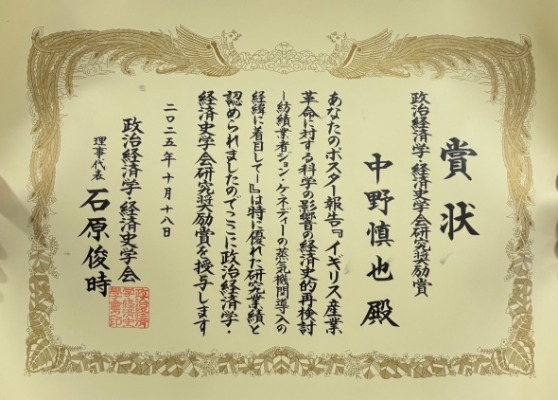 賞状
政治経済学・経済史学会研究奨励賞
中野慎也 殿
あなたのポスター報告『イギリス産業
革命に対する科学の影響の経済史的再検討
―紡績業者ジョン・ケネディーの蒸気機関導入の
経緯に着目して―』は特に優れた研究業績と
認められましたのでここに政治経済学・
経済史学会研究奨励賞を授与します
二〇二五年十月十八日
政治経済学・経済史学会
理事代表 石原俊時
政治経済
学経済史
学会之印